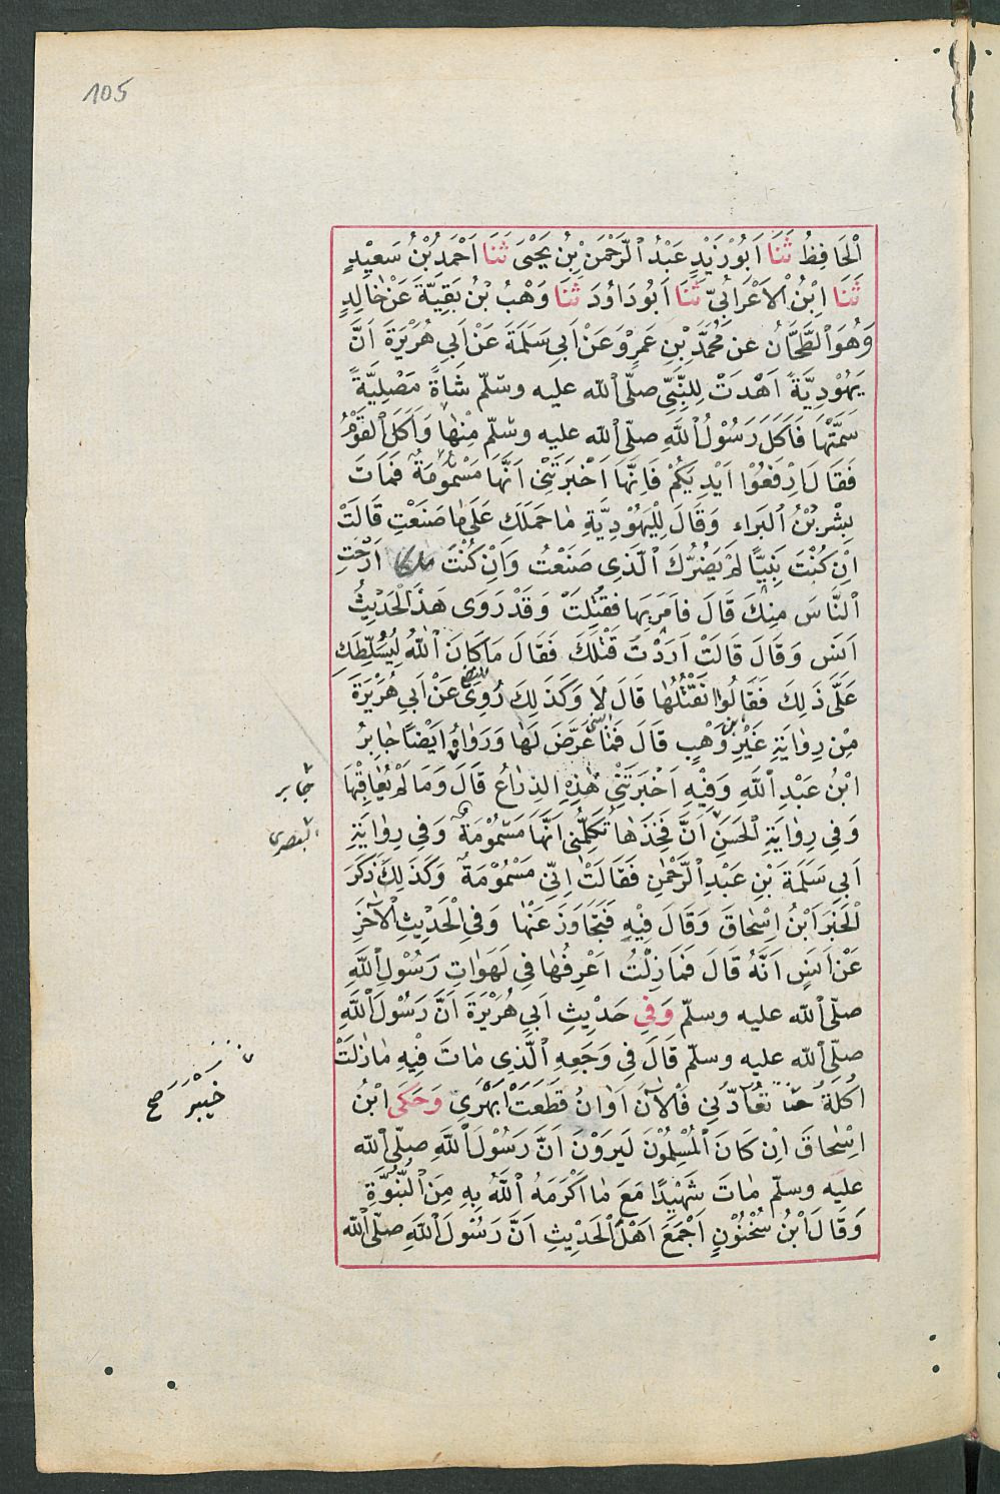 105
اَلْحَافِظُ ثَنَا اَبُوْزَيْدٍ عَبْدُ الرَّحْمَنِ بْنُ يَحْيَى ثَنَا اَحْمَدُ بْنُ سَعِيْدٍ
ثَنَا اِبْنُ الْاَعْرَابِيّ ثَنَا اَبُودَاوُدَ ثَنَا وَهْبُ بْنُ بَقِيَّةَ عَنْ خَالِدٍ
وَهُوَ الطَّحَّانُ عن مُحَمَّدِ بْنِ عَمِرْو عَنْ اَبِي سَلَمَةَ عَنْ اَبِي هُرَيْرَةَ اَنَّ
يَهُوْدِيَّةً اَهْدَتْ لِلنَّبِيِّ صلّى الله عليه وسلّم شَاةً مَصْلِيَّةً
سَمَّتْهَا فَاَكَلَ رَسُوْلُ اللَّهِ صلّى الله عليه وسلّم مِنْهَا وَاَكَلَ الْقَوْمُ
فَقَالَ اِرْفَعُوْا اَيْدِيَكُمْ فَاِنَّهَا اَخْبَرَتْنِى اَنَّهَا مَسْمُوْمَةٌ فَمَاتَ
بِشْرُ بْنُ الْبَرَاءِ وَقَالَ لِلْيَهُوْدِيَّةِ مَا حَمَلَكِ عَلَى مَا صَنَعْتِ قَالَتْ
اِنْ كُنْتَ نَبِيًّا لَمْ يَضُرَّكَ الَّذِى صَنَعْتُ وَاِنْ كُنْتَ مَلِكًا اَرَحْتِ
النَّاسَ مِنْكَ قَالَ فَاَمَرَ بِهَا فَقُتِلَتْ وَقَدْ رَوَى هَذَا الْحَدِيْثَ
اَنَسٌ وَقَالَ قَالَتْ اَرَدْتُ قَتْلَكَ فَقَالَ مَا كَانَ اللهُ لِيُسَلِّطَكِ
عَلَى ذَلِكَ فَقَالُوا نَقْتُلُهَا قَالَ لَا وَكَذَلِكَ رُوِىَ عَنْ اَبِي هُرَيْرَةَ
مِنْ رِوَايَةِ غَيْرِ وَهْبٍ قَالَ فَمَا عَرَّضَ لَهَا وَرَوَاهُ اَيْضًا جَابِرُ
ابْنُ عَبْدِ اللَّهِ وَفِيْهِ اَخْبَرَتْنِىْ هَذِهِ الذِرَاعُ قَالَ وَمَا لَمْ يُعَاقِبْهَا
وَفى رِوَايَةِ الْحَسَنِ اَنَّ فَخِذَهَا تُكَلِّمُنِى اَنَّهَا مَسْمُوْمَةٌ وَفى رِوَايَةِ
اَبِي سَلَمَةَ بْنِ عَبْدِ الرَّحْمٰنِ فَقَالَتْ اِنِّى مَسْمُوْمَةٌ وَكَذَلِكَ ذَكَرَ
الْخَبَرَ ابْنُ اِسْحَاقَ وَقَالَ فِيْهِ فَتَجَاوَزَ عَنْهَا وَفِى الْحَدِيْثِ الْآخَرِ
عَنْ اَنَسٍ اَنَّهُ قَالَ فَمَا زِلْتُ اَعْرِفُهَا فِى لَهَوَاتِ رَسُوْلِ اللَّهِ
صلّى الله عليه وسلّم وَفى حَدِيْثِ اَبِي هُرَيْرَةَ اَنَّ رَسُوْلَ اللَّهِ
صلّى الله عليه وسلّم قَالَ فِى وَجَعِهِ الَّذِى مَاتَ فِيْهِ مَا زَلَتْ
اُكْلَةُ تُعَادُّنِي فَالْآنَ اَوَانُ قَطَعَتْ اَبْهَرِى وَحَكَى ابْنُ
اِسْحَاقَ اِنْ كَانَ الْمُسْلِمُوْنَ لَيَرَوْنَ اَنَّ رَسُوْلَ اللَّهِ صلّى الله
عليه وسلّم مَاتَ شَهِيْدًا مَعَ مَا اَكْرَمَهُ اللَّهُ بِهِ مِنَ النُّبُوَّةِ
وَقَالَ ابْنُ سُحْنُوْنٍ اَجْمَعَ اَهْلُ الْحَدِيْثِ اَنَّ رَسُوْلَ اللَّهِ صلّى الله
جابر
البصرى
خَيْبَرَ صح